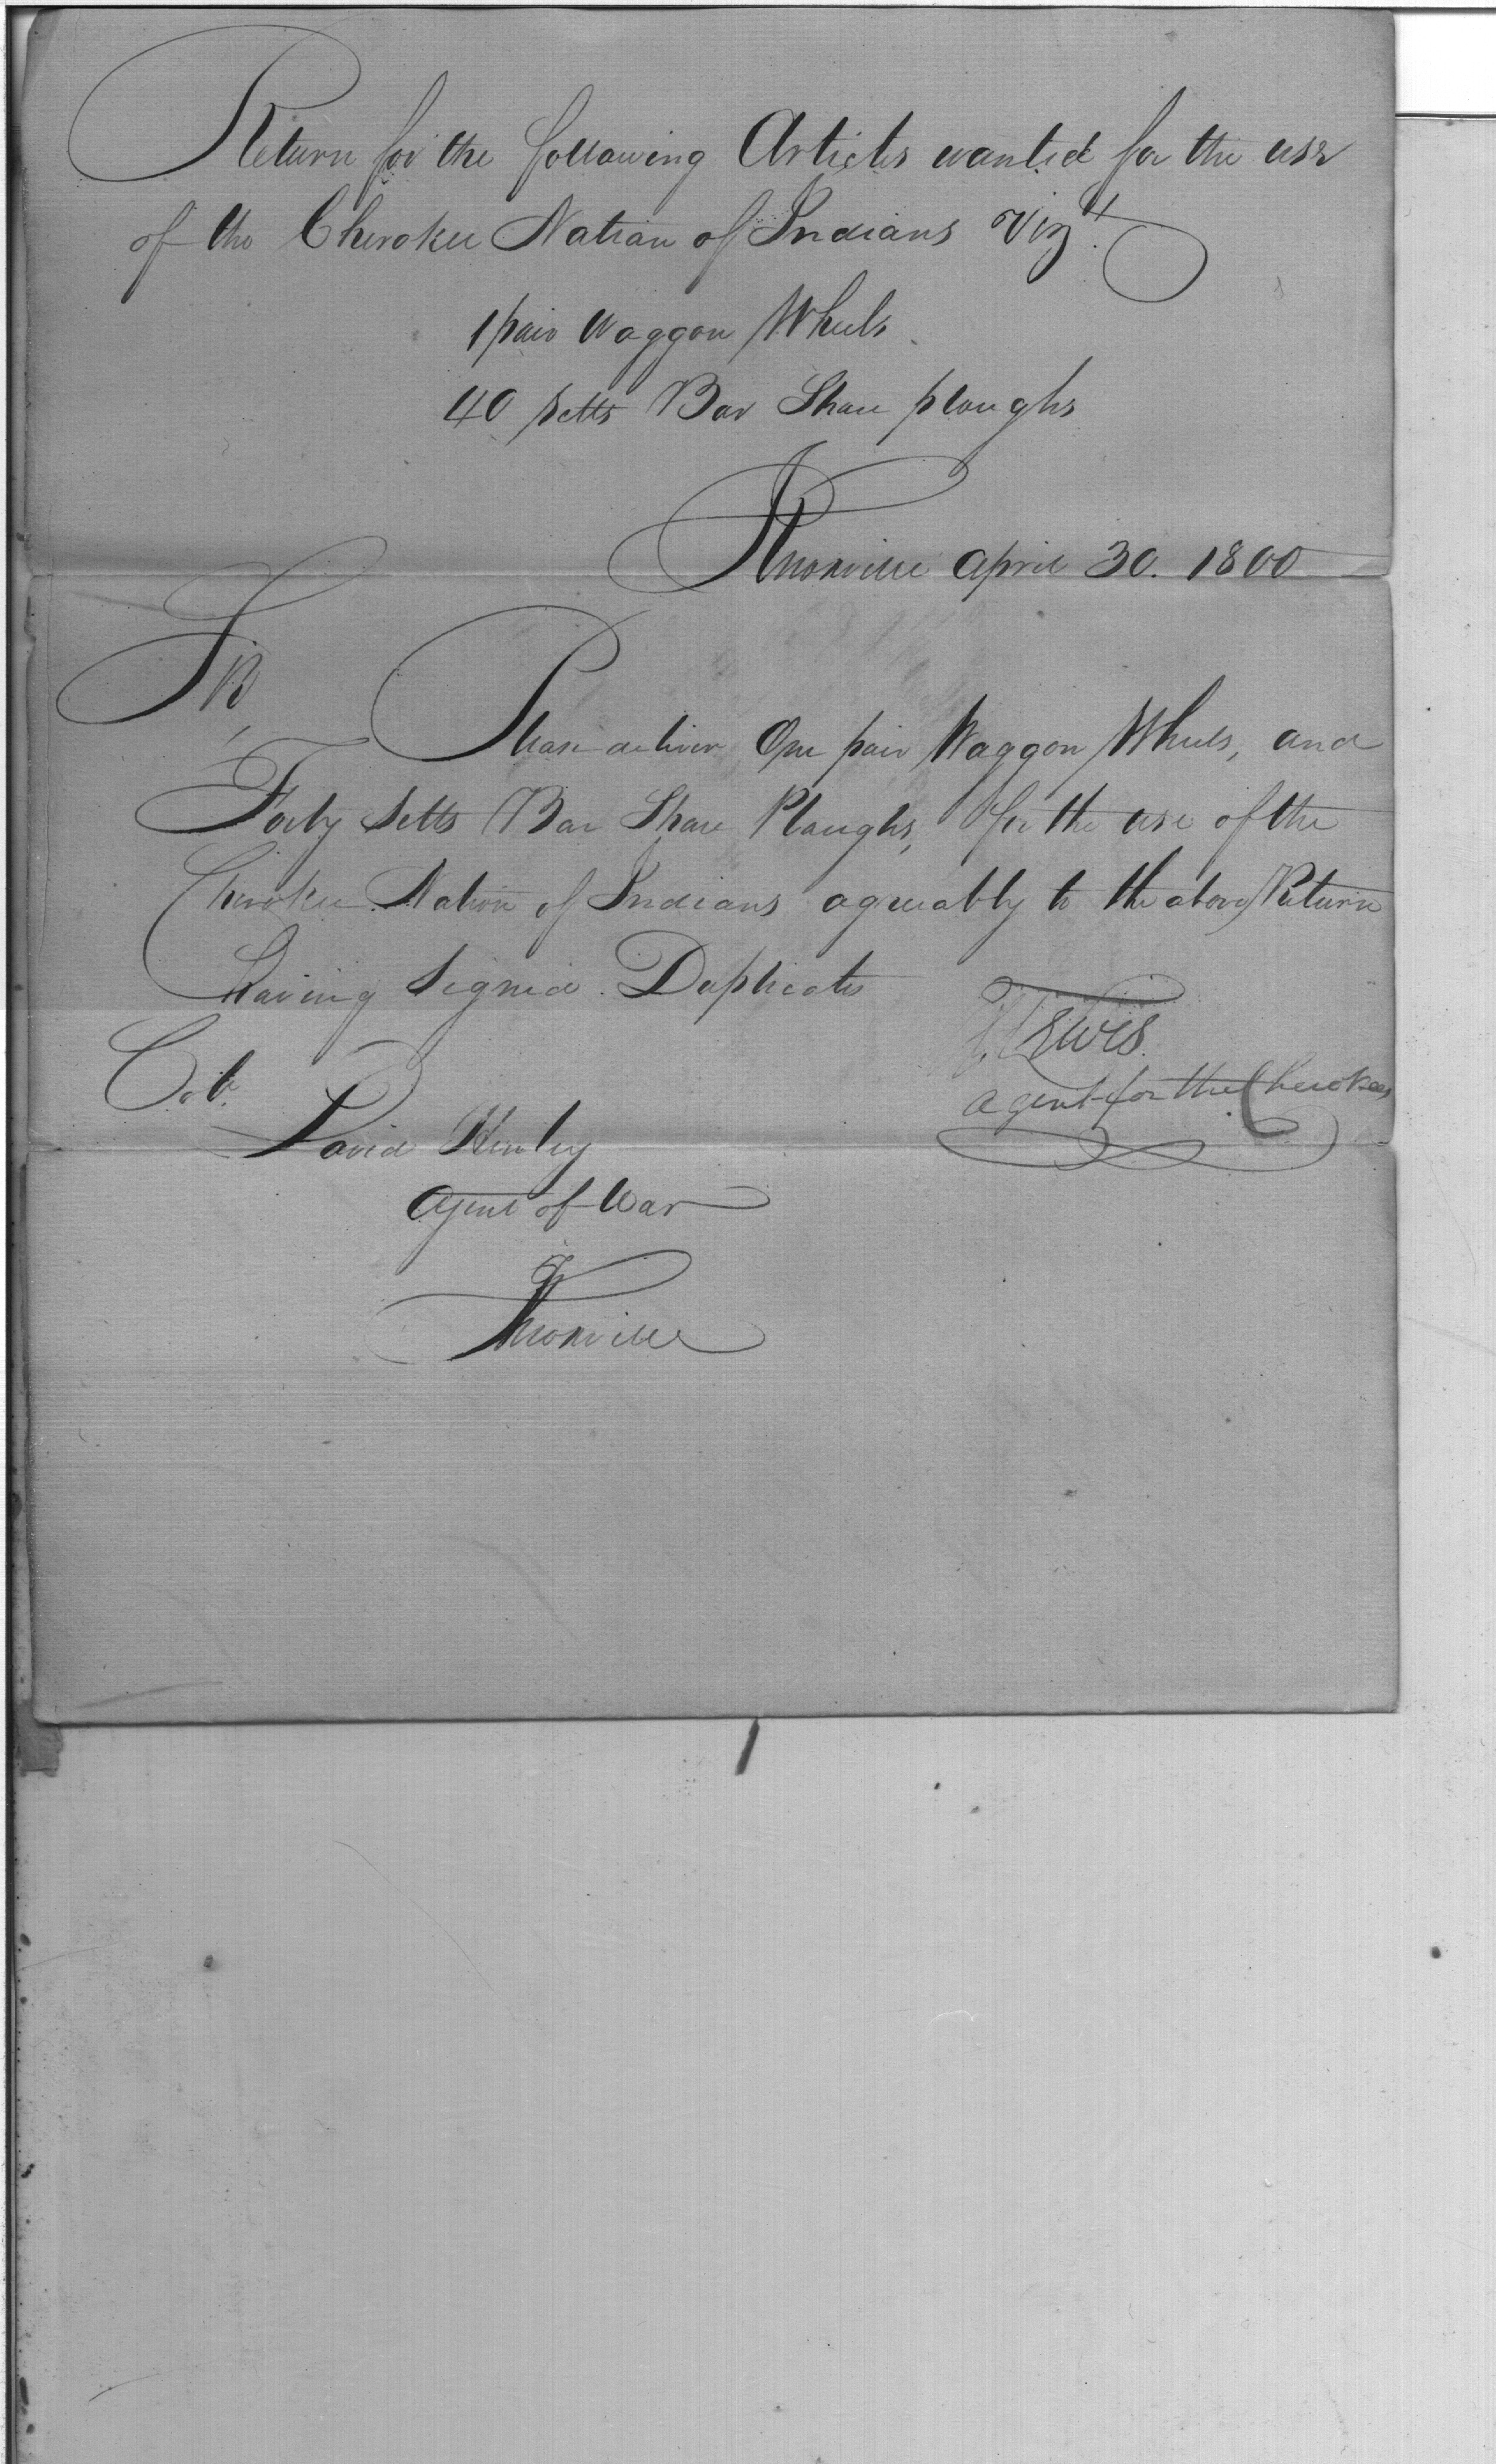 Return for the following Articles wanted for the use
of the Cherokee Nation of Indians Vizt.
1 pair Waggon Wheels
40 Setts Bar Share ploughs
Knoxville April 30. 1800
Sir,
Please deliver One pair Waggon Wheels, and
Forty Setts Bar Share Ploughs, for the use of the
Cherokee Nation of Indians agreeably to the above Return
having Signed Duplicates
Lewis
agent for the Cherokees
Col.
David Henley
Agent of War
Knoxville